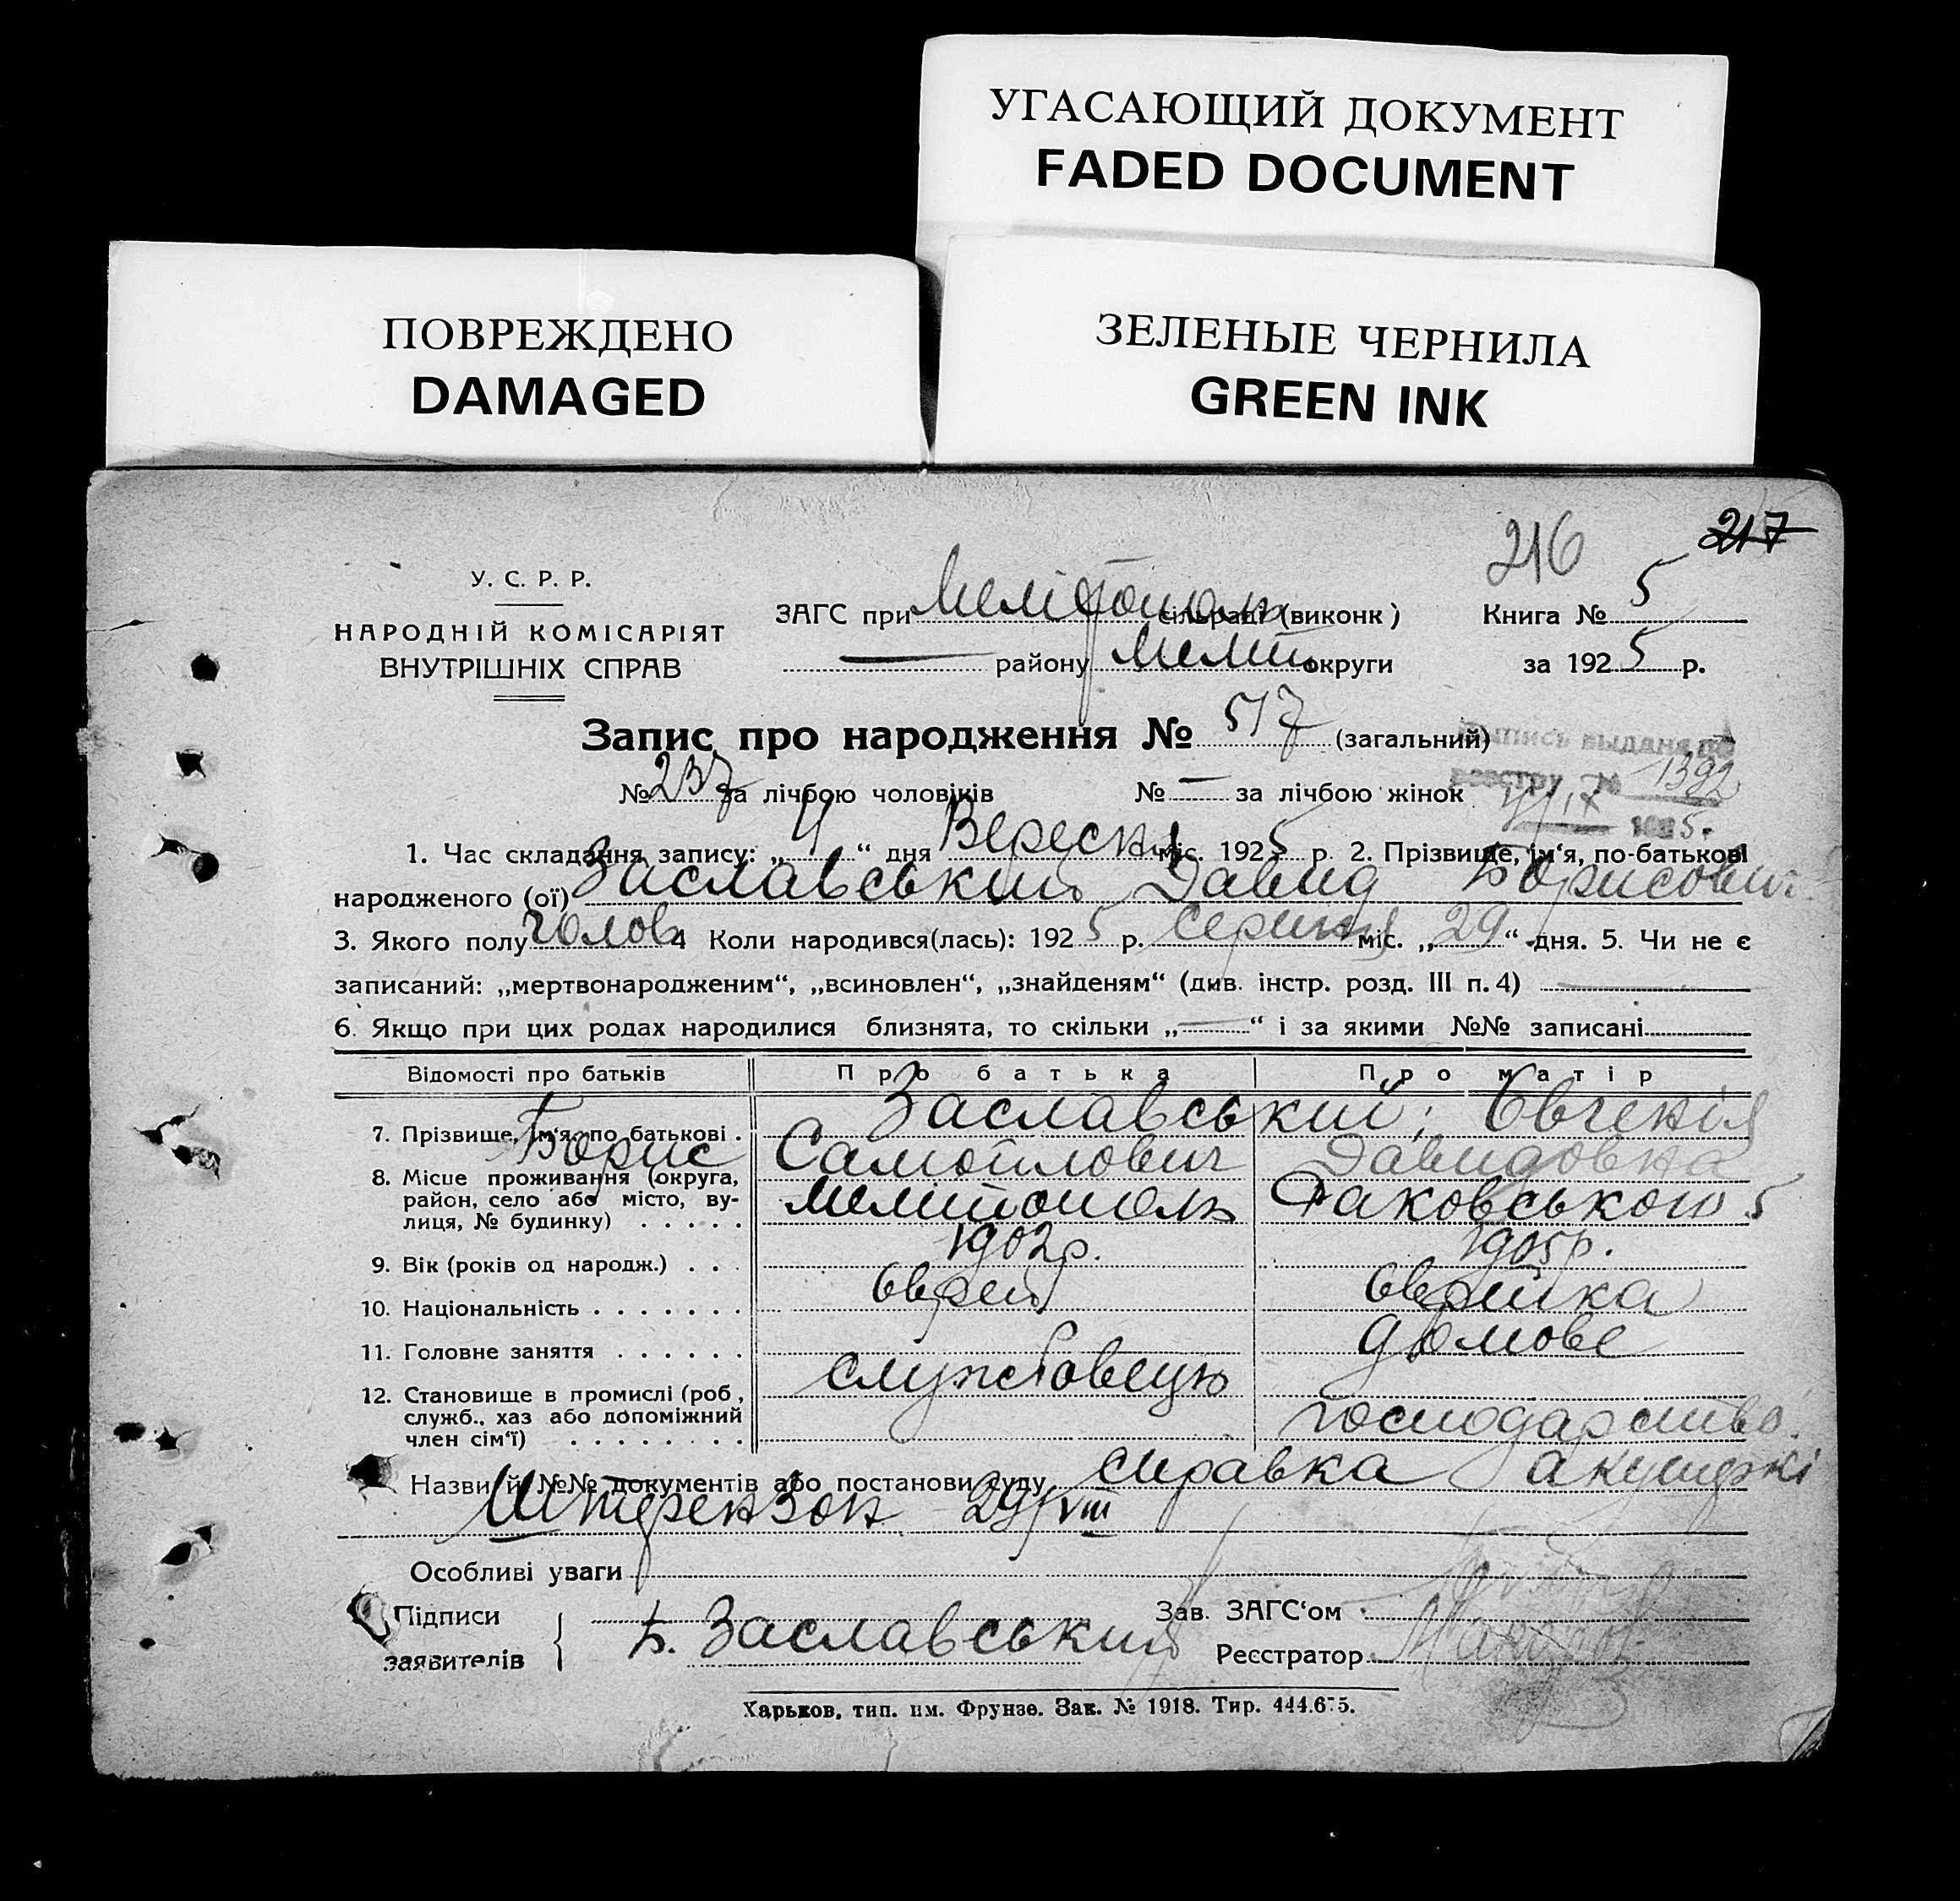 УГАСАЮЩИЙ ДОКУМЕНТ
FADED DOCUMENT
ПОВРЕЖДЕНО
DAMAGED
ЗЕЛЕНЫЕ ЧЕРНИЛА
GREEN INK
216 217
У. С. Р. Р.
НАРОДНІЙ КОМІСАРІЯТ
ВНУТРІШНІХ СПРАВ
ЗАГС при Мелітополь сільраді (виконк) Книга № 5
— району Меліт округи за 1925 р.
Запис про народження № 517 (загальний)
Выпись выдана по
реестру № 1392
4/IX 1925.
№ 237 за лічбою чоловіків № — за лічбою жінок
1. Час складання запису: „4“ дня Вересня міс. 1925 р. 2. Прізвище, ім‘я, по-батькові
народженого (ої) Заславський Давид Борисович
3. Якого полу чолов. 4 Коли народився(лась): 1925 р. серпня міс. „29“ дня. 5. Чи не є
записаний: „мертвонародженим“, „всиновлен“, „знайденям“ (див. інстр. розд. III п. 4)
6. Якщо при цих родах народилися близнята, то скільки „—“ і за якими №№ записані
Відомості про батьків Про батька Про матір
7. Прізвище, ім‘я, по батькові . Заславський; Євгенія
Борис Самойлович Давидовна
8. Місце проживання (округа,
район, село або місто, ву-
лиця, № будинку) . . . . . Мелітополь Раковського 5
9. Вік (років од народж.) . . . 1902р. 1905р.
10. Національність . . . . . . . Єврей Єврейка
11. Головне заняття . . . . . . службовець домове
12. Становище в промислі (роб.,
служб., хаз або допоміжний
член сім‘ї) . . . . . . . . господарство.
Назви й №№ документів або постанови суду справка акушерки
Штерензон 29/VIII
Особливі уваги
Підписи
заявителів
Б. Заславський
Зав. ЗАГС‘ом
Реєстратор
Харьков, тип. им. Фрунзе. Зак. № 1918. Тир. 444.675.